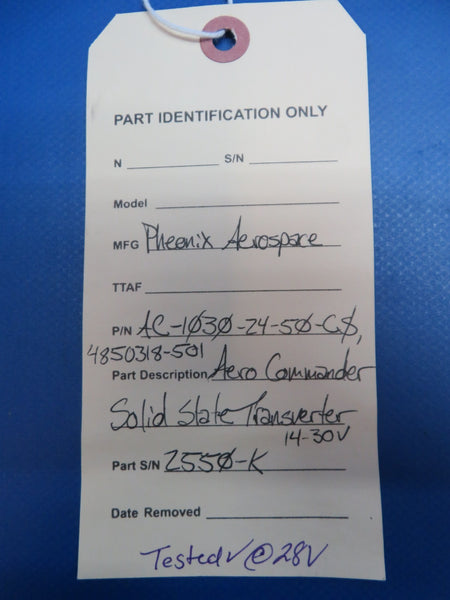 PART IDENTIFICATION ONLY
N S/N
Model
MFG Pheenix Aerospace
TTAF
P/N AC-1030-24-50-C0,
4850318-501
Part Description Aero Commander
Solid State Transverter
14-30V
Part S/N 2550-K
Date Removed
Tested✓@28V